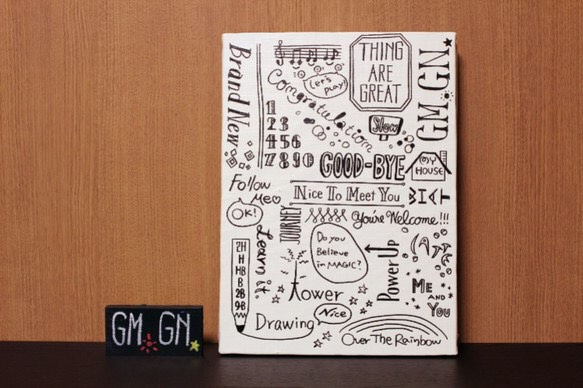 Brand New
Let's Play!
THING
ARE
GREAT
GM GN
Congratulation
Slow
1
23
456
7890
GOOD-BYE
MY
HOUSE
Follow
Me
Nice To Meet You
OK!
JOURNEY
You're Welcome!!!
Learn it.
Do you
Believe
in MAGIC?
Power Up
2H
H
HB
B
2B
9B
Tower
ME
AND
You
Drawing
Nice
Over The Rainbow
GM GN